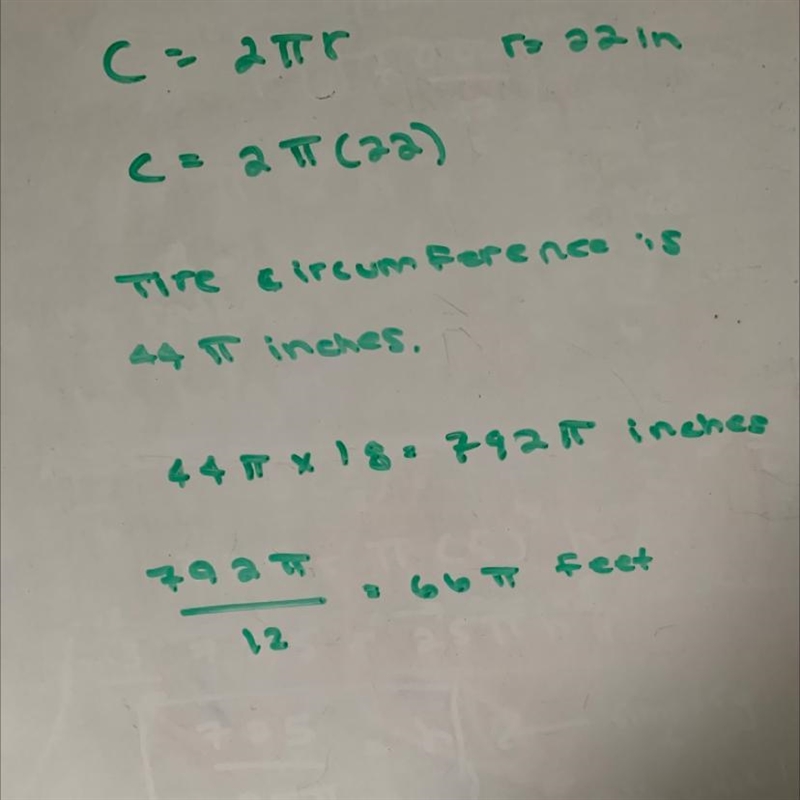 C = 2πr r= 22 in
C = 2π(22)
Tire circumference is
44π inches.
44π x 18 = 792π inches
792π
12
= 66π feet